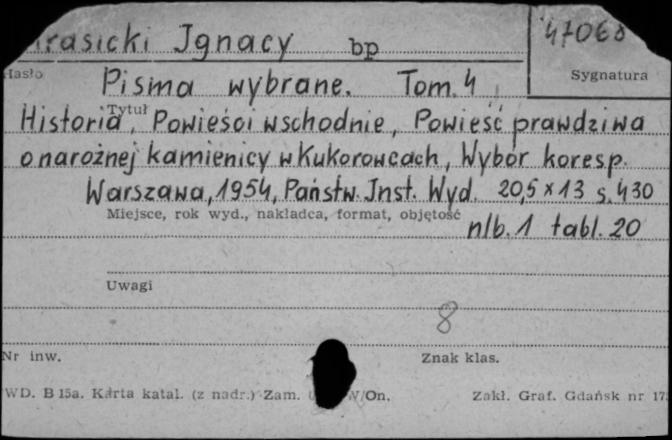 rasicki Ignacy bp
47068
Hasło
Sygnatura
Pisma wybrane. Tom. 4
Tytuł
Historia, Powieści wschodnie, Powieść prawdziwa
o narożnej kamienicy w Kukorowcach, Wybór koresp.
Warszawa, 1954, Państw. Inst. Wyd. 20,5 x 13 s. 430
Miejsce, rok wyd., nakładca, format, objętość
nlb. 1 tabl. 20
Uwagi
8
Nr inw.
Znak klas.
WD. B 15a. Karta katal. (z nadr.) Zam. W/On.
Zakł. Graf. Gdańsk nr 17